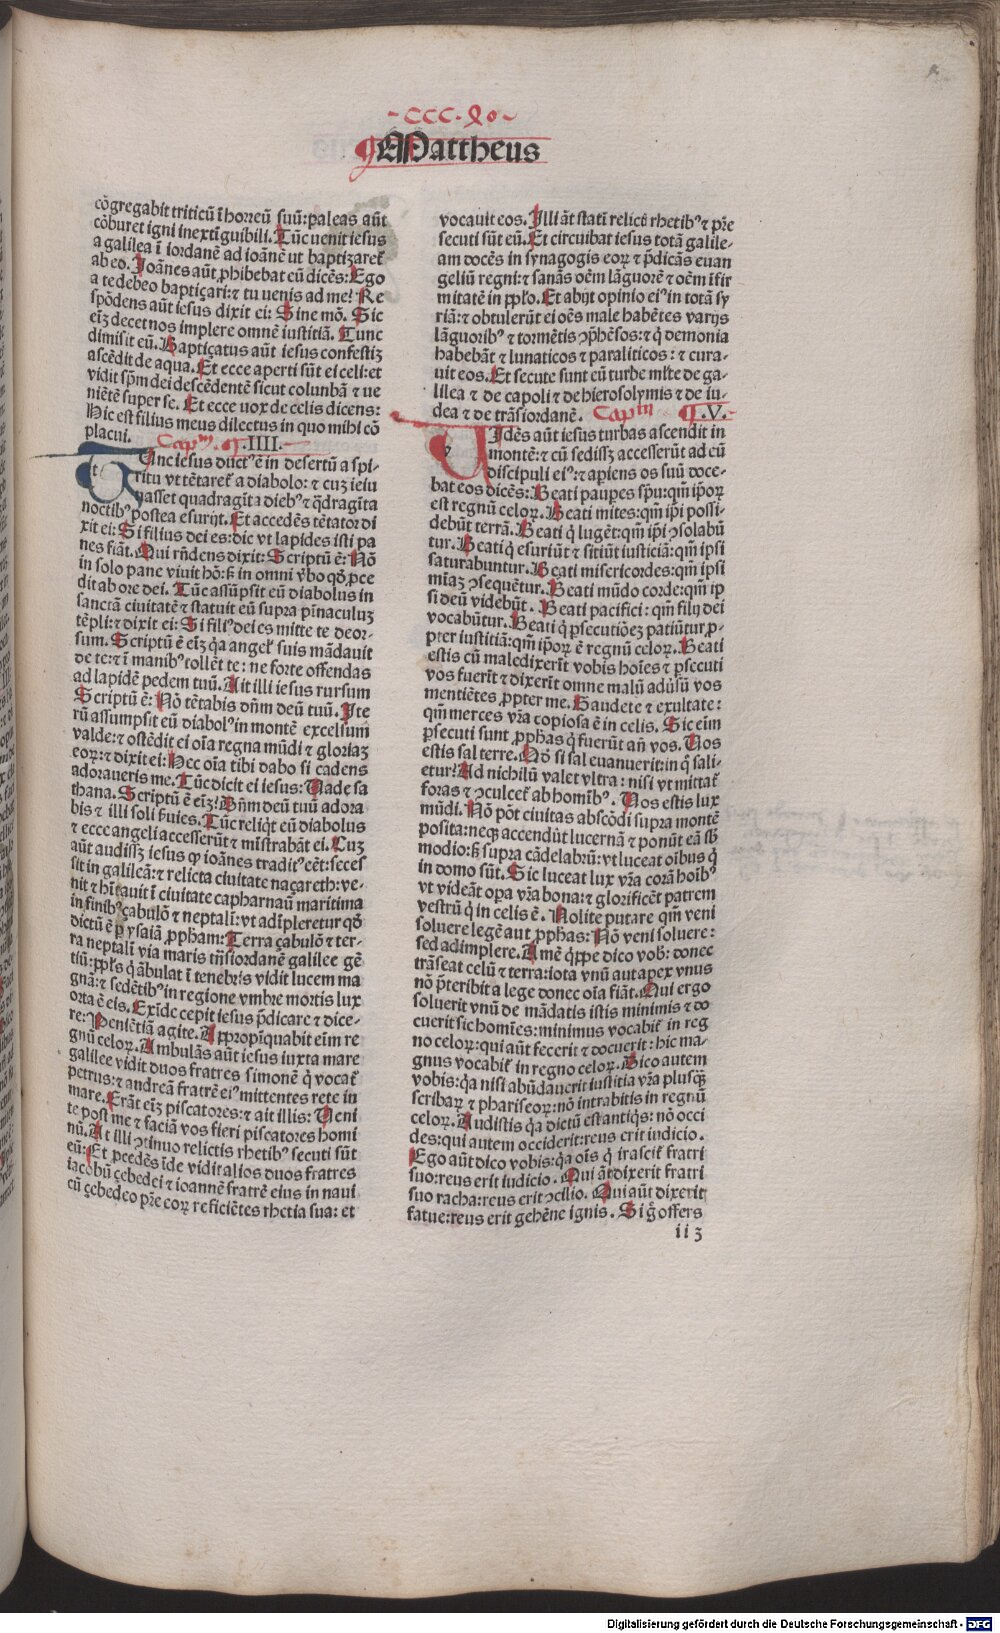 CCC.Lo
Mattheus
cōgregabit triticū ī horreū suū: paleas aūt
cōburet igni inextīguibili. Tūc uenit iesus
a galilea ī iordanē ad ioānē ut baptizareť
ab eo. Joānes aūt ꝓhibebat eū dicēs: Ego
a te debeo baptiçari: ⁊ tu uenis ad me? Re
spōdens aūt iesus dixit ei: Sine mō. Sic
eīꝫ decet nos implere omnē iustitiā. Tunc
dimisit eū. Baptiçatus aūt iesus confestiꝫ
ascēdit de aqua. Et ecce aperti sūt ei celi: et
vidit spm̄ dei descēdentē sicut columbā ⁊ ue
niētē super se. Et ecce uox de celis dicens:
Hic est filius meus dilectus in quo mihi cō
placui. Capᵐ. ¶ .IIII.
t
Unc iesus ductꝰ ē in desertū a spi-
ritu vt tētareť a diabolo: ⁊ cuꝫ ieiu
nasset quadragīta diebꝰ ⁊ q̄dragīta
noctibꝰ postea esurijt. Et accedēs tētator di
xit ei: Si filius dei es: dic vt lapides isti pa
nes fiāt. Qui rn̄dens dixit: Scriptū ē: Nō
in solo pane viuit hō: sꝫ in omni v̄bo qd̄ ꝓce
dit ab ore dei. Tūc assūpsit eū diabolus in
sanctā ciuitatē ⁊ statuit eū supra pīnaculuꝫ
tēpli: ⁊ dixit ei: Si filiꝰ dei es mitte te deor-
sum. Scriptū ē eīꝫ q̄a angel' suis mādauit
de te: ⁊ ī manibꝰ tollēt te: ne forte offendas
ad lapidē pedem tuū. Ait illi iesus rursum
Scriptū ē: Nō tētabis dn̄m deū tuū. Ite
rū assumpsit eū diabolꝰ in montē excelsum
valde: ⁊ ostēdit ei oīa regna mūdi ⁊ gloriaꝫ
eoꝝ: ⁊ dixit ei: Hec oīa tibi dabo si cadens
adoraueris me. Tūc dicit ei iesus: Uade sa
thana. Scriptū ē eīꝫ: Dn̄m deū tuū adora
bis ⁊ illi soli s̄uies. Tūc reliq̄t eū diabolus
⁊ ecce angeli accesserūt ⁊ mīstrabāt ei. Cuꝫ
aūt audissꝫ iesus ꝙ ioānes traditꝰ eēt: seces
sit in galileā: ⁊ relicta ciuitate naçareth: ve-
nit ⁊ hītauit ī ciuitate capharnaū maritima
in finibꝰ çabulō ⁊ neptali: vt adīpleretur qd̄
dictū ē ꝑ ysaiā ꝓpham: Terra çabulō ⁊ ter-
ra neptali via maris trn̄siordanē galilee gē
tiū: ppl's q̄ ābulat ī tenebris vidit lucem ma
gnā: ⁊ sedētibꝰ in regione vmbre mortis lux
orta ē eis. Exīde cepit iesus p̄dicare ⁊ dice-
re: Penīētiā agite. Appropīquabit eīm re
gnū celoꝝ. Ambulās aūt iesus iuxta mare
galilee vidit duos fratres simonē q̄ vocať
petrus: ⁊ andreā fratrē eiꝰ mittentes rete in
mare. Erāt eīꝫ piscatores: ⁊ ait illis: Ueni
te post me ⁊ faciā vos fieri piscatores homi
nū. At illi ꝯtinuo relictis rhetibꝰ secuti sūt
eū: Et ꝓcedēs īde vidit alios duos fratres
iacobū çebedei ⁊ ioannē fratrē eius in naui
cū çebedeo pr̄e eoꝝ reficiētes rhetia sua: et
vocauit eos. Illi āt statī relict̄ rhetibꝰ ⁊ pr̄e
secuti sūt eū. Et circuibat iesus totā galile-
am docēs in synagogis eoꝝ ⁊ p̄dicās euan
geliū regni: ⁊ sanās oēm lāguorē ⁊ oēm īfir
mitatē in ppl'o. Et abijt opinio eiꝰ in totā sy
riā: ⁊ obtulerūt ei oēs male habētes varijs
lāguoribꝰ ⁊ tormētis ꝯp̄hēsos: ⁊ q̄ demonia
habebāt ⁊ lunaticos ⁊ paraliticos: ⁊ cura-
uit eos. Et secute sunt eū turbe ml'te de ga-
lilea ⁊ de capoli ⁊ de hierosolymis ⁊ de iu-
dea ⁊ de trāsiordanē. Capᵐ ¶ .V.
v
Idēs aūt iesus turbas ascendit in
montē: ⁊ cū sedissꝫ accesserūt ad eū
discipuli eiꝰ: ⁊ apiens os suū doce-
bat eos dicēs: Beati paupes spū: qm̄ ip̄oꝝ
est regnū celoꝝ. Beati mites: qm̄ ip̄i possi-
debūt terrā. Beati q̄ lugēt: qm̄ ip̄i ꝯsolabū
tur. Beati q̄ esuriūt ⁊ sitiūt iusticiā: qm̄ ipsi
saturabuntur. Beati misericordes: qm̄ ipsi
mīaꝫ ꝯsequētur. Beati mūdo corde: qm̄ ip
si deū videbūt. Beati pacifici: qm̄ filij dei
vocabūtur. Beati q̄ ꝑsecutiōeꝫ patiūtur ꝓ-
pter iustitiā: qm̄ ip̄oꝝ ē regnū celoꝝ. Beati
estis cū maledixerīt vobis hoīes ⁊ ꝑsecuti
vos fuerīt ⁊ dixerīt omne malū adūsū vos
mentiētes ꝓpter me. Gaudete ⁊ exultate:
qm̄ merces vr̄a copiosa ē in celis. Sic eīm
ꝑsecuti sunt ꝓphas q̄ fuerūt an̄ vos. Uos
estis sal terre. Nō si sal euanuerit: in q̄ sali-
etur? Ad nichilū valet vltra: nisi vt mittať
foras ⁊ ꝯculceť ab homībꝰ. Uos estis lux
mūdi. Nō pōt ciuitas abscōdi supra montē
posita: neqꝫ accendūt lucernā ⁊ ponūt eā sb̄
modio: sꝫ supra cādelabrū: vt luceat oībus q̄
in domo sūt. Sic luceat lux vr̄a corā hoībꝰ
vt videāt oꝑa vr̄a bona: ⁊ glorificēt patrem
vestrū q̄ in celis ē. Nolite putare qm̄ veni
soluere legē aut ꝓphas: Nō veni soluere:
sed adimplere. Amē q̄ppe dico vob̄: donec
trāseat celū ⁊ terra: iota vnū aut apex vnus
nō p̄teribit a lege donec oīa fiāt. Qui ergo
soluerit vnū de mādatis istis minimis ⁊ do
cuerit sic homīes: minimus vocabiť in reg
no celoꝝ: qui aūt fecerit ⁊ docuerit: hic ma-
gnus vocabiť in regno celoꝝ. Dico autem
vobis: q̄a nisi abūdauerit iustitia vr̄a plusqꝫ
scribaꝝ ⁊ phariseoꝝ: nō intrabitis in regnū
celoꝝ. Audistis q̄a dictū est antiq̄s: nō occi
des: qui autem occiderit: reus erit iudicio.
Ego aūt dico vobis: q̄a oīs q̄ irasciť fratri
suo: reus erit iudicio. Qui āt dixerit fratri
suo racha: reus erit ꝯcilio. Qui aūt dixerit
fatue: reus erit gehēne ignis. Si g̊ offers
ii 3
Digitalisierung gefördert durch die Deutsche Forschungsgemeinschaft - DFG